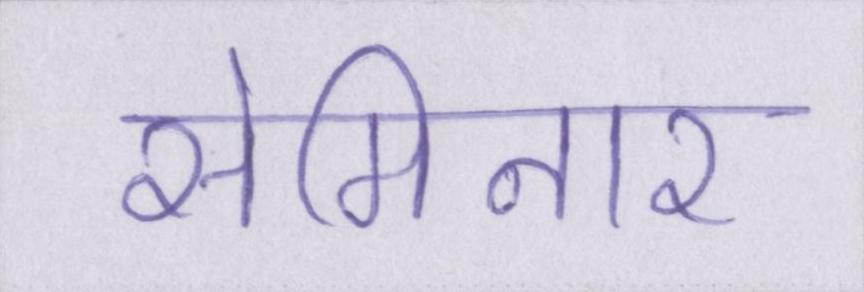 सेमिनार